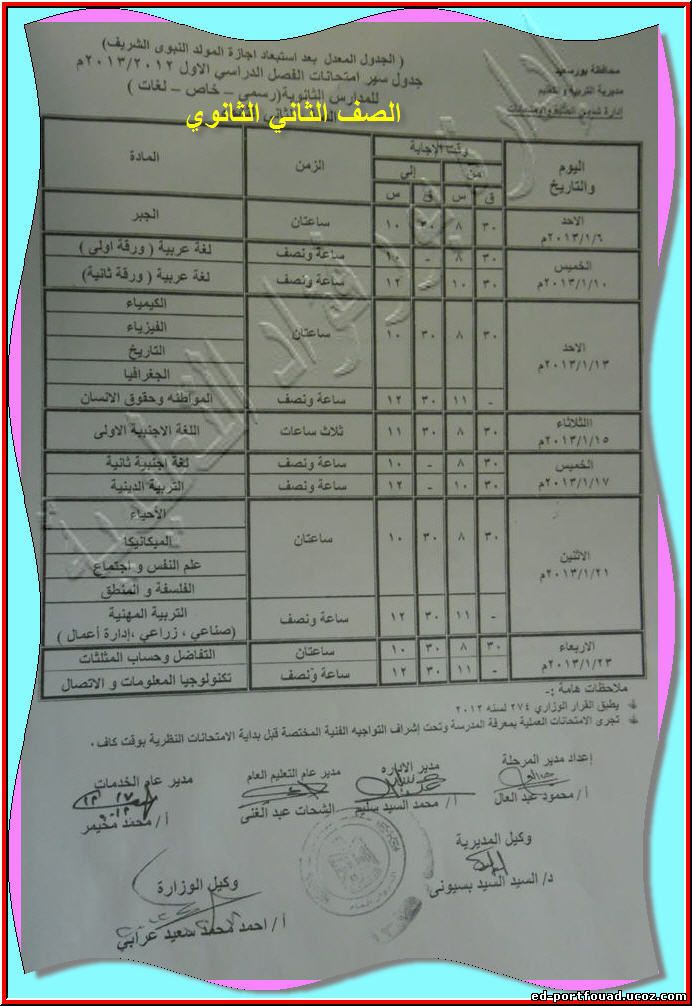 ( الجدول المعدل بعد استبعاد اجازة المولد النبوى الشريف )
جدول سير امتحانات الفصل الدراسي الاول ٢٠١٣/٢٠١٢م
للمدارس الثانوية(رسمي – خاص – لغات )
محافظة بورسعيد
مديرية التربية و التعليم
إدارة شئون الطلبة والامتحانات
الصف الثاني الثانوي
اليوم والتاريخ وقت الإجابة الزمن المادة
من إلى
ق س ق س
الاحد ٢٠١٣/١/٦م ٣٠ ٨ ٣٠ ١٠ ساعتان الجبر
الخميس ٢٠١٣/١/١٠م ٣٠ ٨ - ١٠ ساعة ونصف لغة عربية ( ورقة اولى )
٣٠ ١٠ - ١٢ ساعة ونصف لغة عربية ( ورقة ثانية)
الاحد ٢٠١٣/١/١٣م ٣٠ ٨ ٣٠ ١٠ ساعتان الكيمياء
الفيزياء
التاريخ
الجغرافيا
- ١١ ٣٠ ١٢ ساعة ونصف المواطنه وحقوق الانسان
الثلاثاء ٢٠١٣/١/١٥م ٣٠ ٨ ٣٠ ١١ ثلاث ساعات اللغة الاجنبية الاولى
الخميس ٢٠١٣/١/١٧م ٣٠ ٨ - ١٠ ساعة ونصف لغة اجنبية ثانية
٣٠ ١٠ - ١٢ ساعة ونصف التربية الدينية
الاثنين ٢٠١٣/١/٢١م ٣٠ ٨ ٣٠ ١٠ ساعتان الأحياء
الميكانيكا
علم النفس و اجتماع
الفلسفة و المنطق
- ١١ ٣٠ ١٢ ساعة ونصف التربية المهنية
(صناعي ، زراعي ،إدارة أعمال )
الاربعاء ٢٠١٣/١/٢٣م ٣٠ ٨ ٣٠ ١٠ ساعتان التفاضل وحساب المثلثات
- ١١ ٣٠ ١٢ ساعة ونصف تكنولوجيا المعلومات و الاتصال
ملاحظات هامة :-
يطبق القرار الوزاري ٢٧٤ لسنه ٢٠١٢
تجرى الامتحانات العملية بمعرفة المدرسة وتحت إشراف التواجيه الفنية المختصة قبل بداية الامتحانات النظرية بوقت كاف٠
إعداد مدير المرحلة
أ/ محمود عبد العال
مدير الاداره
أ/ محمد السيد سليم
مدير عام التعليم العام
الشحات عبد الغنى
مدير عام الخدمات
أ/ محمد مخيمر
وكيل المديرية
د/ السيد السيد بسيونى
وكيل الوزارة
أ / احمد محمد سعيد عرابي
ed-portfouad.ucoz.com